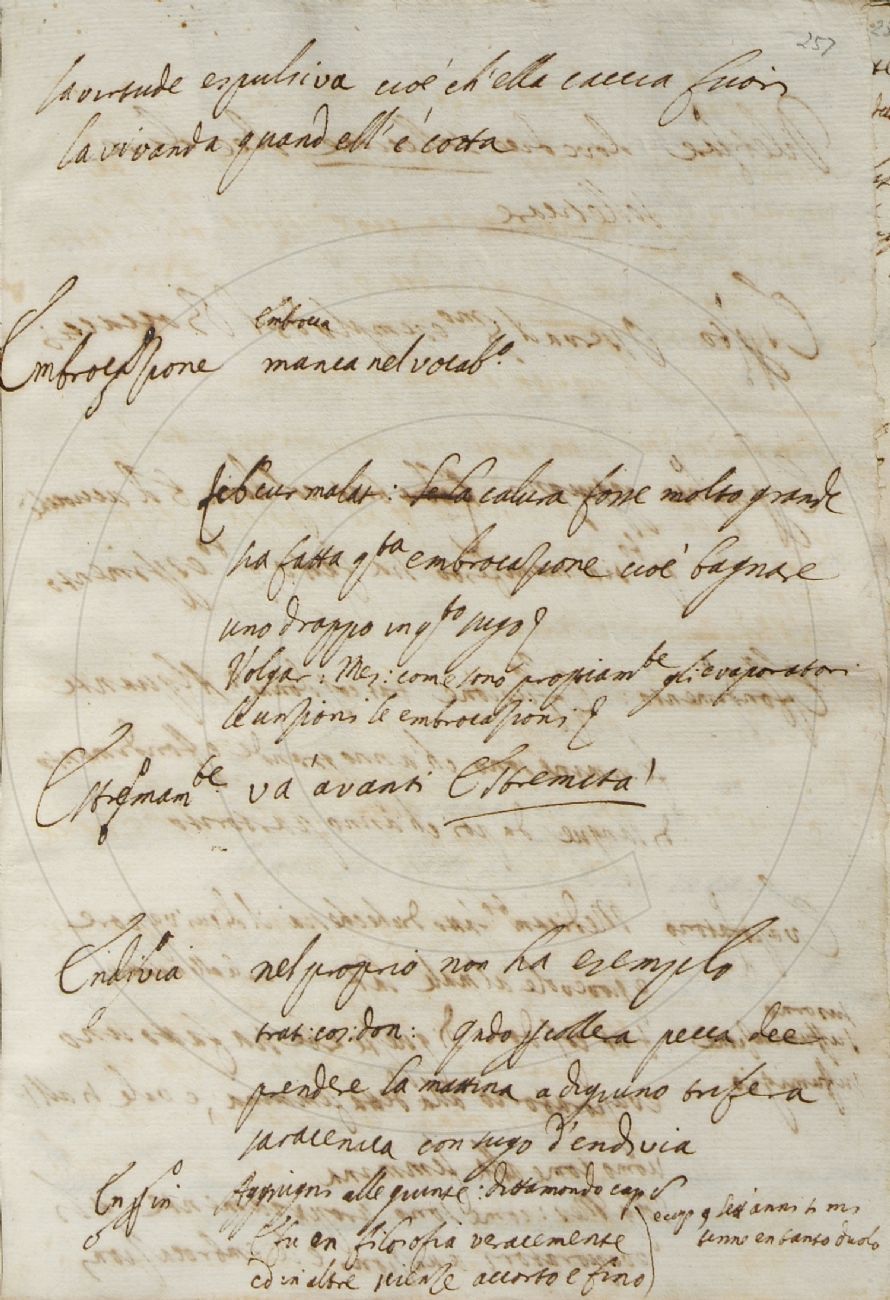 257
la virtude espulsiva cioè ch'ella caccia fuori
la vivanda quand ell' è cotta
Embroca
Embrocazione manca nel vocab.o
lib cur malat: Se la calura fosse molto grande
sia fatta q.ta embrocazione cioè bagnare
uno drappo in q.to sugo
Volgar: Mes: come sono propriam.te gli evaporatori
le unzioni le embrocazioni
Estremam.te và avanti Estremità
Endivia nel proprio non ha esempio
trat: cos: don: Qndo per collera pecca dee
prendere la mattina a digiuno trifera
saracenica con sugo d'endivia
Enfin Aggiugni alle giunte: dittamondo cap 5
E fu en filosofia veracemente
ed in altre scienze accorto e fino